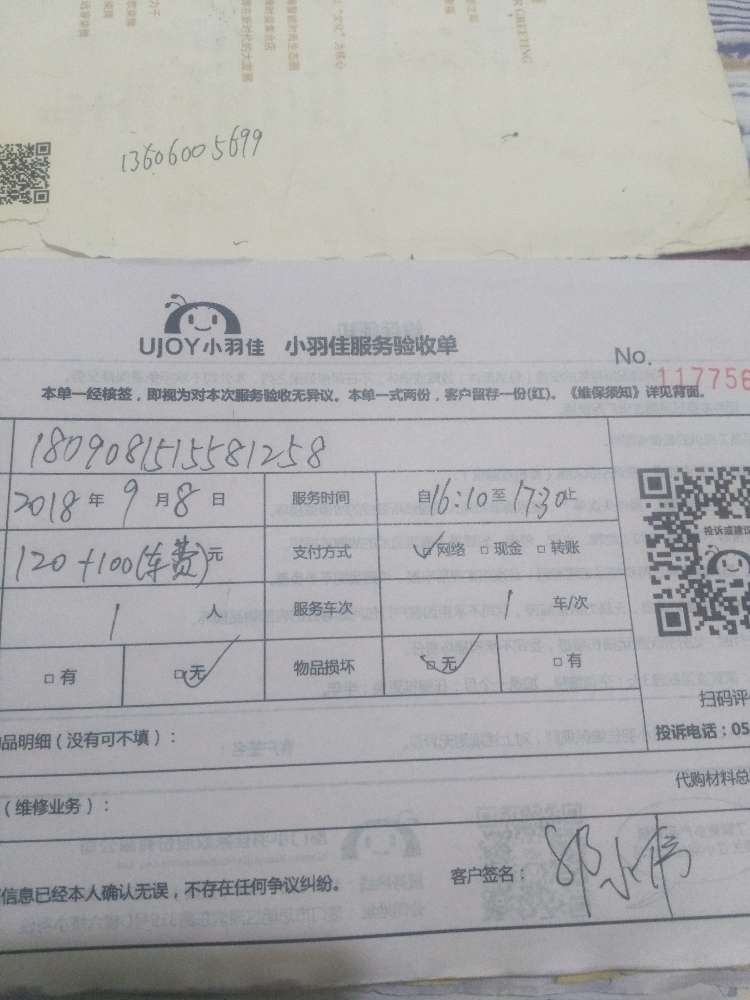 13606005699
UJOY小羽佳 小羽佳服务验收单
No. 117756
本单一经核签，即视为对本次服务验收无异议。本单一式两份，客户留存一份(红)。《维保须知》详见背面。
1809081515581258
2018年9月8日 服务时间 自16:10至17:30止
120+100(车费)元 支付方式 ☑网络 □现金 □转账
投诉或建议
1人 服务车次 1车/次
□有 ☑无 物品损坏 ☑无 □有
扫码评
品明细（没有可不填）：
投诉电话：05
代购材料总
（维修业务）：
信息已经本人确认无误，不存在任何争议纠纷。 客户签名：